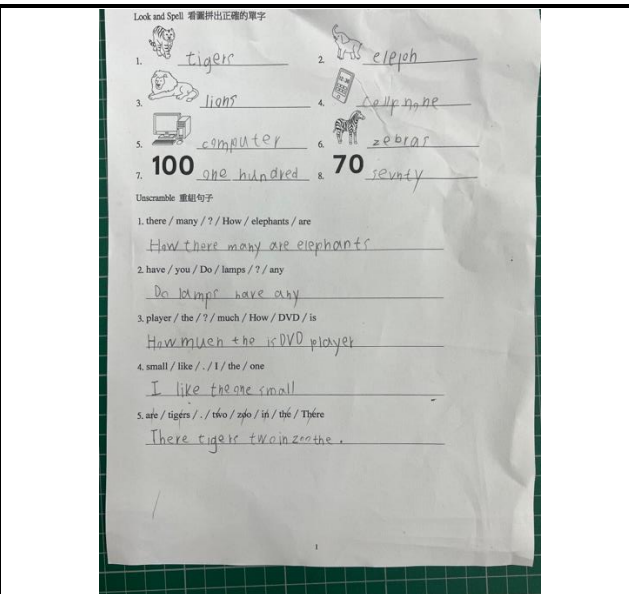 Look and Spell 看圖拼出正確的單字
1. tigers 2. eleph
3. lions 4. cellphone
5. computer 6. zebras
7. 100 one hundred 8. 70 sevnty
Unscramble 重組句子
1. there / many / ? / How / elephants / are
How there many are elephants
2. have / you / Do / lamps / ? / any
Do lamps have any
3. player / the / ? / much / How / DVD / is
How much the is DVD player
4. small / like / . / I / the / one
I like the one small
5. are / tigers / . / two / zoo / in / the / There
There tigers two in zoo the .
1